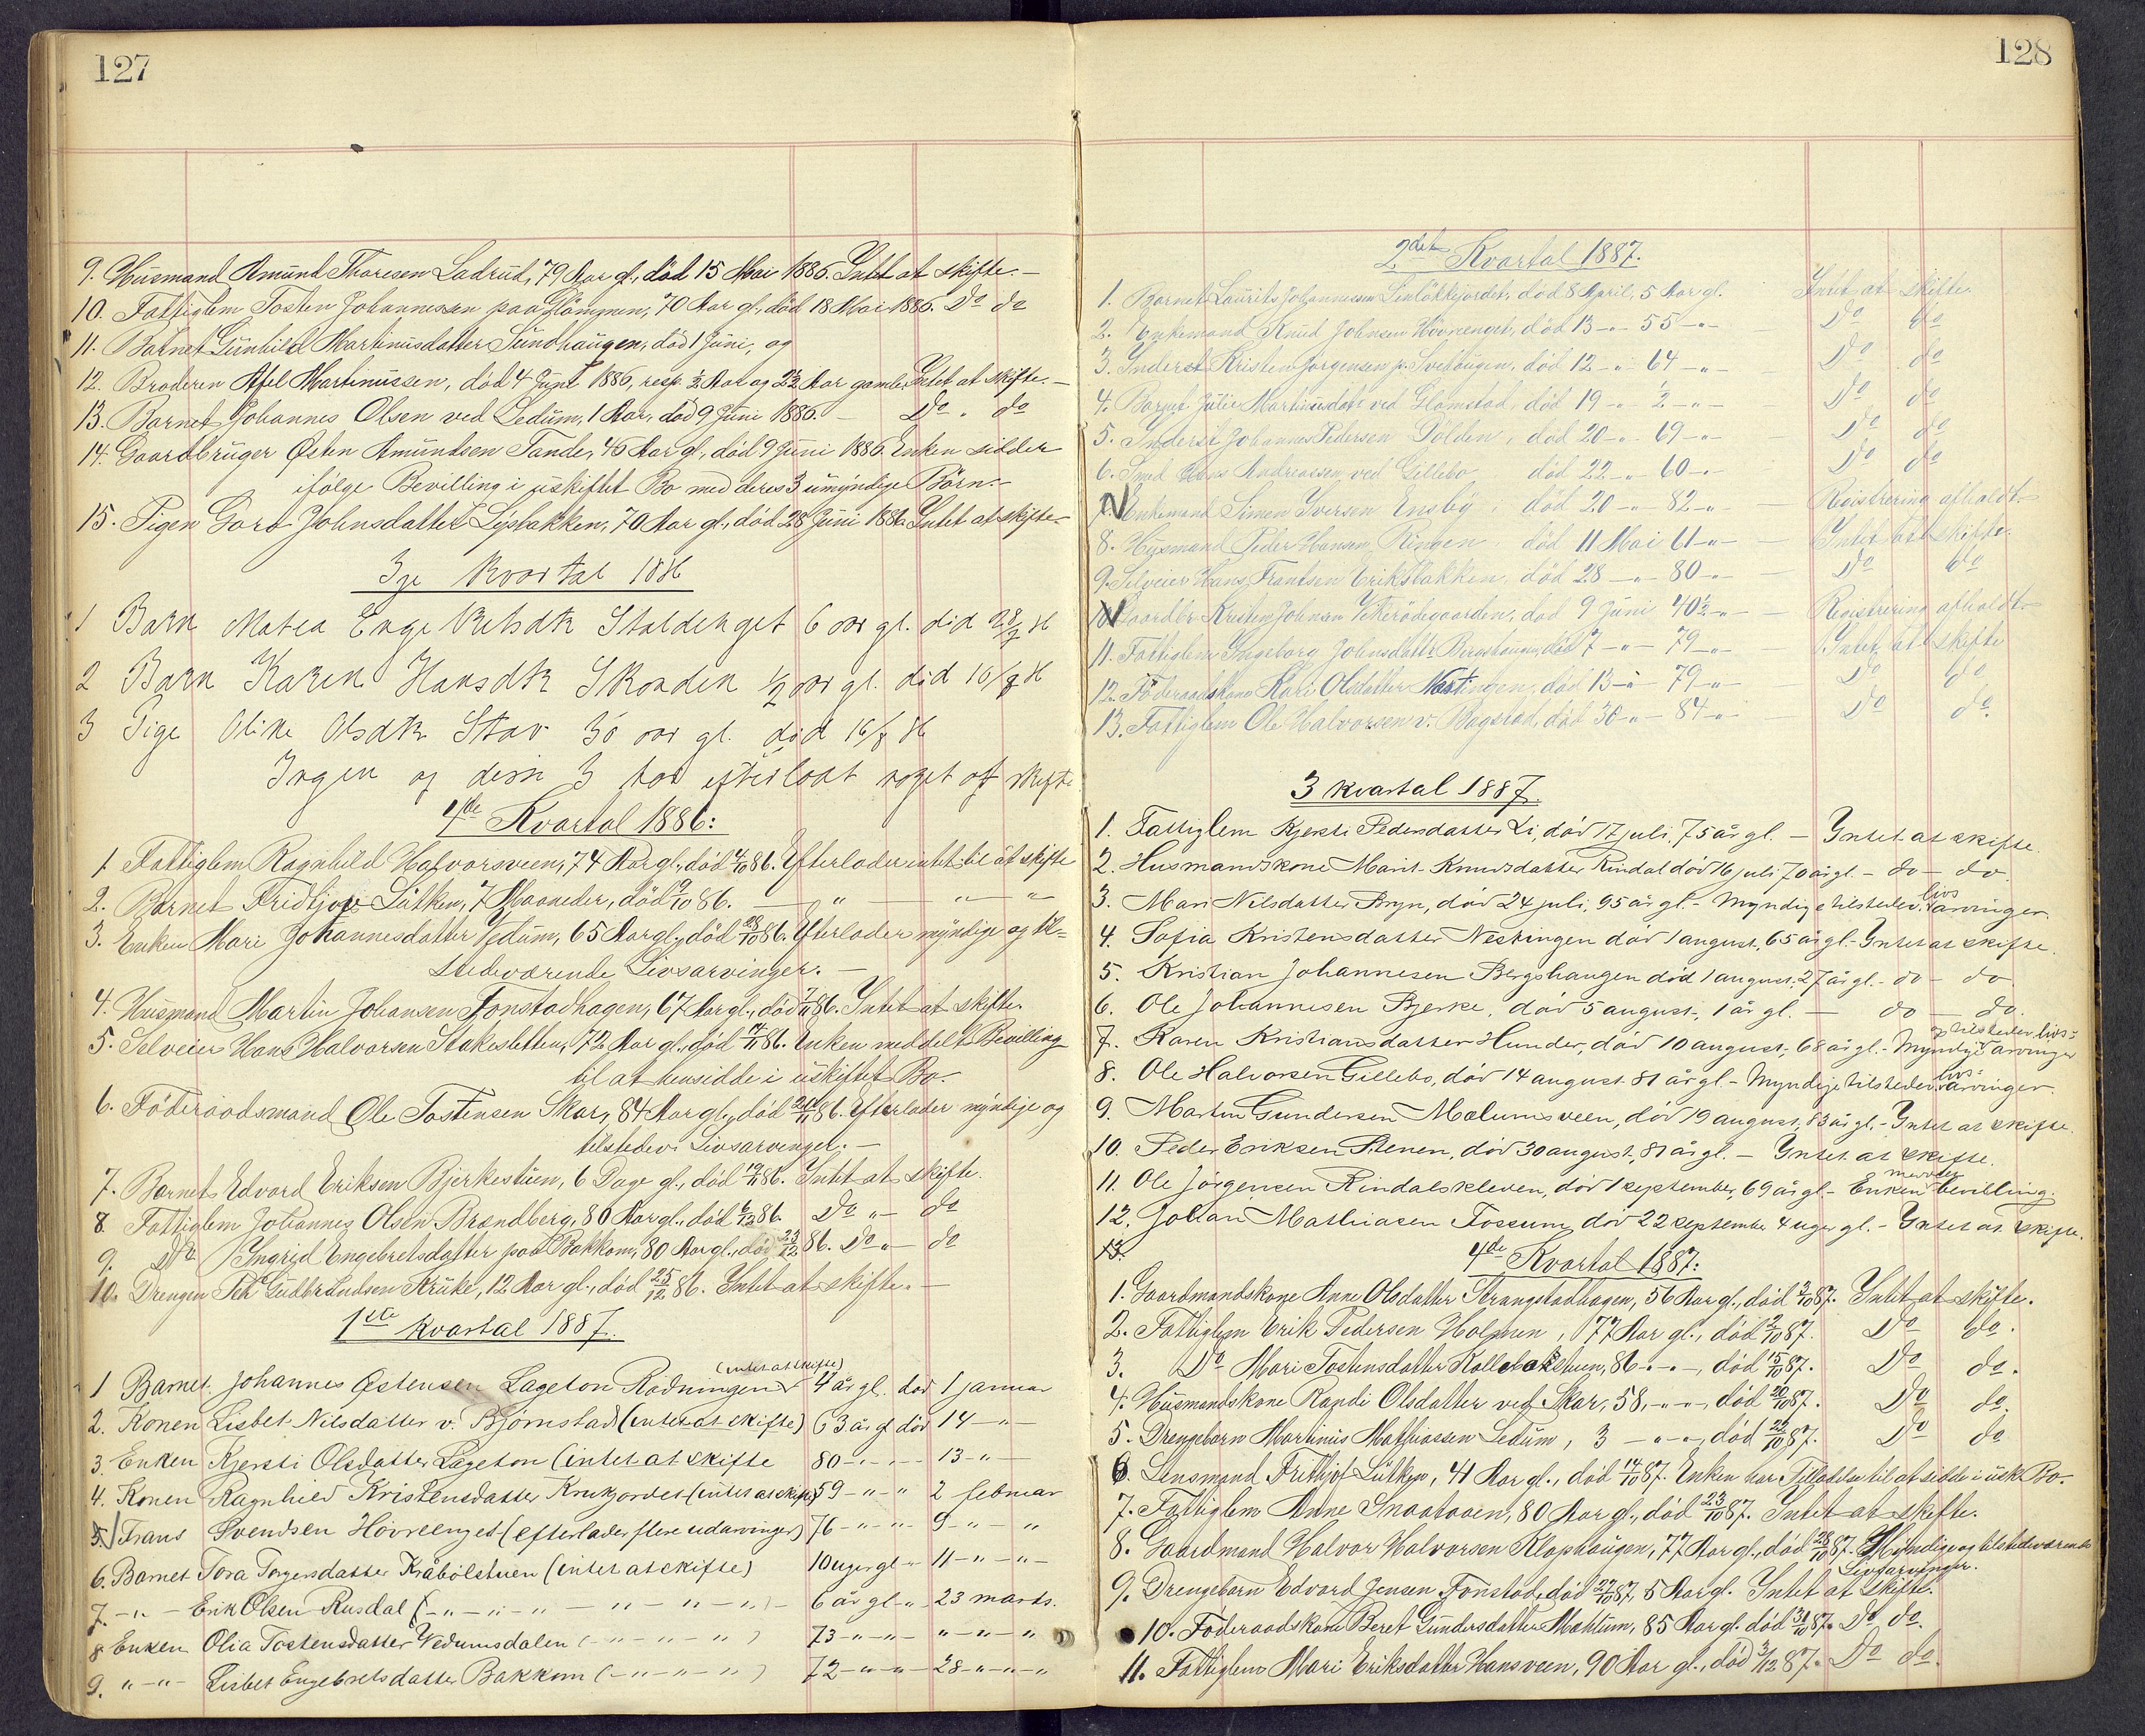 127
9. Husmand Amund Thoresen Ladrud, 79 Aar gl., död 15 Mai 1886. Intet at skifte. —
10. Fattiglem Tosten Johannesen paa Glömmen, 70 Aar gl., död 18 Mai 1886. Do do
11. Barnet Gunhild Martinusdatter Sundhaugen, död 1 Juni, og
12. Broderen Afel Martinussen, död 4 Juni 1886, resp. ½ Aar og 2½ Aar gamle. Intet at skifte. —
13. Barnet Johannes Olsen ved Ledum, 1 Aar, död 9 Juni 1886. — Do " do
14. Gaardbruger Østen Amundsen Tande, 46 Aar gl., död 9 Juni 1886. Enken sidder
ifölge Bevilling i uskiftet Bo med deres 3 umyndige Börn. —
15. Pigen Goro Johnsdatter Lysbakken, 70 Aar gl., död 28 Juni 1886. Intet at skifte. —
3je Kvartal 1886
1 Barn Matea Engebretsdtr Staldenget 6 aar gl. död 28/7 86
2 Barn Karen Hansdtr Skonden ½ aar gl. död 16/8 86
3 Pige Oline Olsdtr Stav 30 aar gl. död 16/8 86
Ingen af disse 3 har efterladt noget at skifte
4de Kvartal 1886:
1 Fattiglem Ragnhild Halvorsveen, 74 Aar gl., död 4/10 86. Efterlader intet til at skifte
2. Barnet Fridtjov Lütken, 7 Maaneder, död 9/10 86. — " — " — "
3. Enken Mari Johannesdatter Vedum, 65 Aar gl., död 28/10 86. Efterlader myndige og til-
stedeværende Livsarvinger. —
4. Husmand Martin Johansen Fonstadhagen, 67 Aar gl., död 7/11 86. Intet at skifte.
5. Selveier Hans Halvorsen Stakesletten, 72 Aar gl., död 14/11 86. Enken meddelt Bevilling
til at hensidde i uskiftet Bo.
6. Föderaadsmand Ole Tostensen Skar, 84 Aar gl., död 24/11 86. Efterlader myndige og
tilstedev. Livsarvinger. —
7. Barnet Edvard Eriksen Bjerkestuen, 6 Dage gl., död 19/11 86. Intet at skifte.
8 Fattiglem Johannes Olsen Brændberg, 80 Aar gl., död 6/12 86. Do " — do
9. Do Ingrid Engebretsdatter paa Bakkom, 80 Aar gl., död 23/12 86. Do " — do
10. Drengen Peh Gudbrandsen Kruke, 12 Aar gl., död 25/12 86. Intet at skifte. —
1ste kvartal 1887.
(intet at skifte)
1 Barnet Johannes Østensen Lageton Rodningen 4 år gl. död 1 januar
2. Konen Lisbet Nilsdatter v. Björnstad (intet at skifte) 63 år gl död 14 — " —
3. Enken Kjersti Olsdatter Lageton (intet at skifte 80 — " — " — 13 — " —
4. Konen Ragnhild Kristensdatter Krukjordet (intet at skifte) 59 — " — " 2 februar
5. Frans Svendsen Hovreenget (efterlader flere udarvinger) 76 — " — " — 9 — " — "
6. Barnet Tora Torgersdatter Kråbölstuen (intet at skifte) 10 uger gl — " 11 — " — " —
7. — " — Erik Olsen Rusdal (— " — " — " — " — " — ") — 6 år gl — " 23 marts.
8 Enken Olia Tostensdatter Vedumsdalen (— " — " — ") 73 — " — " — " — " — "
9. " — " — Lisbet Engebretsdatter Bakkom (— " — " — ") 72 — " — " — 28 — " — " — "
128
2det Kvartal 1887.
1. Barnet Laurits Johannesen Linlökkejordet, död 8 April, 5 Aar gl. Intet at skifte.
2. Enkemand Knud Johnsen Hovreenget, död 13 — " — 55 — " — Do do
3. Inderst Kristen Jörgensen p. Svehaugen, död 12 — " — 64 — " — Do do
4. Barnet Julie Martinusdatr ved Glomstad, död 19 — " — ½ — " — Do do
5. Inderst Johannes Pedersen Dölden, död 20 — " — 69 — " — Do do
6. Smed Hans Andreassen ved Gillebo död 22 — " — 60 — " — Do do
7. Enkemand Simen Iversen Ensby, död 20 — " — 82 — " — Registrering afholdt. —
8. Husmand Peder Hansen Ringen, död 11 Mai 61 — " — Intet at skifte.
9. Selveier Hans Frantsen Eriksbakken, död 28 — " — 80 — " — Do do
10 Gaardbr. Kristen Johnsen Vetterödegaarden, död 9 Juni 40½ — " — Registrering afholdt —
11. Fattiglem Ingeborg Johnsdattr Bergshaugen, död 7 — " — 79 — " — Intet at skifte
12. Föderaadskone Kari Olsdatter Nestingen, död 13 — " — 79 — " — Do do
13. Fattiglem Ole Halvorsen v. Bagstad, död 30 — " — 84 — " — Do do.
3 kvartal 1887.
1. Fattiglem Kjersti Pedersdatter Li, död 17 juli, 75 år gl. — Intet at skifte.
2. Husmandskone Marit Knudsdatter Rindal död 16 juli 70 år gl. — do — do.
3. Mari Nilsdatter Bryn, död 24 juli, 95 år gl. — Myndige tilstedev. livsarvinger.
4. Sofia Kristensdatter Nestingen död 1 august, 65 år gl. — Intet at skifte.
5. Kristian Johannesen Bergshaugen död 1 august, 27 år gl. — do — do
6. Ole Johannesen Bjerke, död 5 august, 1 år gl. — do — do.
7. Karen Kristiansdatter Hunder, död 10 august, 68 år gl. — Myndige og tilstedev. livs-arvinger
8. Ole Halvorsen Gillebo, död 14 august 81 år gl. — Myndige tilstedev. livs-arvinger.
9. Martin Gundersen Mælumsveen, död 19 august, 83 år gl. — Intet at skifte.
10. Peder Eriksen Stenen, död 30 august, 81 år gl. — Intet at skifte.
11. Ole Jörgensen Rindalskleven, död 1 september, 69 år gl — Enken meddelt bevilling.
12. Johan Mathiasen Fossum död 22 september 4 uger gl. — Intet at skifte.
13.
4de Kvartal 1887:
1. Gaardmandskone Anne Olsdatter Strangstadhagen, 56 Aar gl., död 2/10 87. Intet at skifte.
2. Fattiglem Erik Pedersen Holmen, 77 Aar gl., död 2/10 87. Do do.
3. Do Mari Tostensdatter Kollebakstuen, 86 — " — " —, död 15/10 87. Do do.
4. Husmandskone Randi Olsdatter ved Skar, 58, — " — " —, död 20/10 87. Do do.
5. Drengebarn Martinus Mathiassen Ledum, 3 — " — " —, död 22/10 87. Do do
6. Lensmand Frithjof Lütken, 41 Aar gl., död 14/10 87. Enken har Tilladelse til at sidde i usk. Bo.
7. Fattiglem Anne Snaataaen, 80 Aar gl., död 23/10 87. Intet at skifte.
8. Gaardmand Halvor Halvorsen Klophaugen, 77 Aar gl., död 28/10 87. Myndige og tilstedeværende
Livsarvinger.
9. Drengebarn Edvard Jensen Fonstad, död 27/10 87, 5 Aar gl. Intet at skifte.
10. Föderaadskone Beret Gundersdatter Mæhlum, 85 Aar gl. död 31/10 87. Do do.
11. Fattiglem Mari Eriksdatter Hansveen, 90 Aar gl., död 3/12 87. Do do.